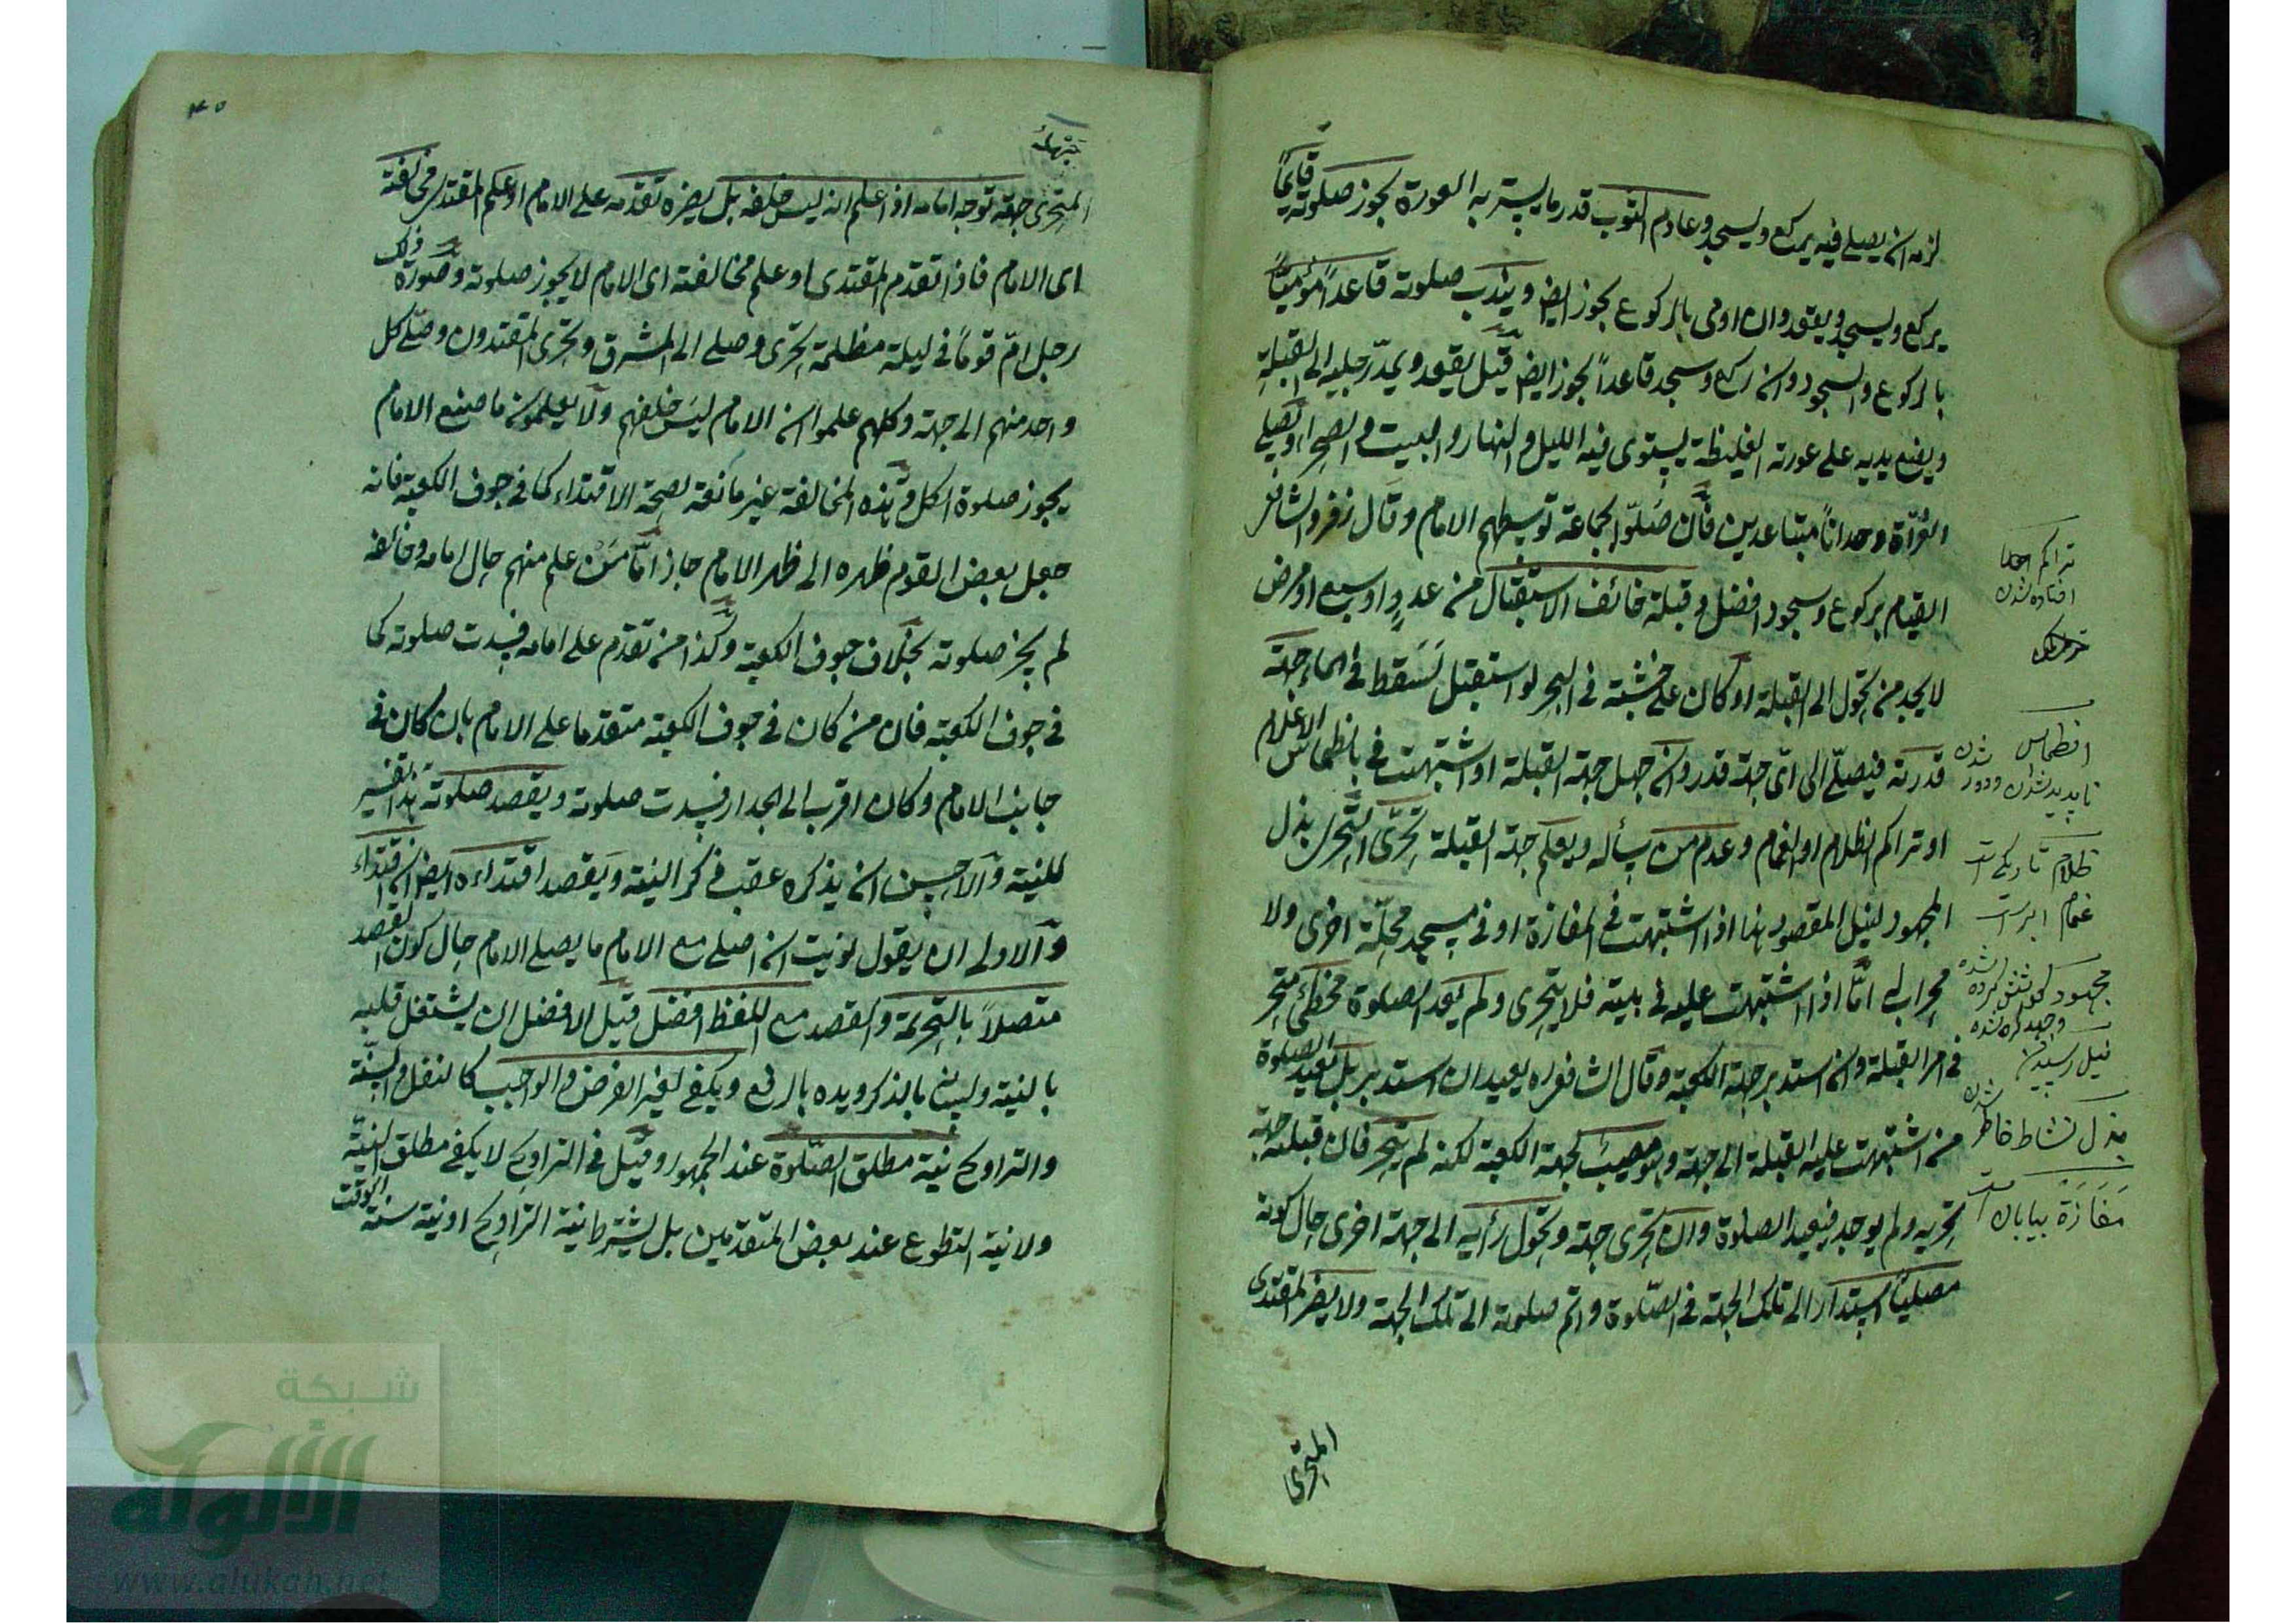 لزمه ان يصلي فيه يركع ويسجد وعادم الثوب قدر ما يستر به العورة يجوز صلوته قائماً
يركع ويسجد ويقعد وان اومى بالركوع يجوز ايض ويندب صلوته قاعداً مؤمياً
بالركوع والسجود وان ركع وسجد قاعداً يجوز ايض قيل يقعد ويمدّ رجليه الى القبلة
ويضع يديه على عورته الغليظة يستوى فيه الليل والنهار والبيت والصحراء ويصلي
العراة وحداناً متباعدين فان صلّوا بجماعة توسطهم الامام وقال زفر والشافعي
القيام بركوع وسجود افضل وقبلة خائف الاستقبال من عدوٍ او سبع او مرض
لا يجد من يحوّل الى القبلة او كان على خشبة فى البحر لو استقبل تسقط فى الماء جهة
قدرته فيصلّي الى اىّ جهة قدر وان جهل جهة القبلة او اشتبهت فى بانطماس الاعلام
او تراكم الظلام او الغمام وعدم من يسأله ويعلم جهة القبلة تحرّى التحرى بذل
المجهود لنيل المقصود هذا اذا اشتبهت فى المفازة او فى مسجد محلّة اخرى ولا
محراب له امّا اذا اشتبهت عليه فى بيته فلا يتحرى ولم يعد الصلوة مخطئ متحر
فى امر القبلة وان استدبر جهة الكعبة وقال الشافعى ره يعيد ان استدبر بل يعيد الصلوة
من اشتبهت عليه القبلة الى جهة وهو مصيب لجهة الكعبة لكنه لم يتحر فان قبلته جهة
تحريه ولم يوجد فيعيد الصلوة وان تحرى جهة وتحوّل رأيه الى جهة اخرى حال كونه
مصلياً استدار الى تلك الجهة فى الصّلوة واتم صلوته الى تلك الجهة ولا يضر المقتدى
المتحرى
تراكم
افتاده شدن
انطماس
ناپديد شدن ودور شدن
ظلام تاريكى است
غمام ابر است
مجهود كوشش كرده شده
وجهد كرده شده
نيل رسيدن
بذل نشاط خاطر شدن
مَفَازَة بيابان است
جهله
المتحرى جهة توجه امامه اذا علم انه ليس خلفه بل يضره تقدمه على الامام او علم المقتدى مخالفته
اى الامام فاذا تقدم المقتدى او علم مخالفته اى الامام لا يجوز صلوته وصورة ذلك
رجل امّ قوماً فى ليلة مظلمة تحرى وصلى الى المشرق وتحرى المقتدون وصلى كل
واحد منهم الى جهة وكلهم علموا ان الامام ليس خلفهم ولا يعلمون ما صنع الامام
يجوز صلوة الكل وهذه المخالفة غير مانعة لصحة الاقتداء كما فى جوف الكعبة فانه
جعل بعض القوم ظهره الى ظهر الامام جاز امّا مَنْ علم منهم حال امامه وخالفه
لم يجز صلوته بخلاف جوف الكعبة وكذا من تقدم على امامه فسدت صلوته كما
فى جوف الكعبة فان من كان فى جوف الكعبة متقدما على الامام بان كان فى
جانب الامام وكان اقرب الى الجدار فسدت صلوته ويقصد صلوته هذا تفسير
للنية والاحسن ان يذكره عقب ذكر النية ويقصد اقتداءه ايض ان اقتداء
والاولى ان يقول نويت ان اصلى مع الامام ما يصلى الامام حال كون القصد
متصلاً بالتحريمة والقصد مع اللفظ افضل قيل الافضل ان يشتغل قلبه
بالنية ولسانه بالذكر ويده بالرفع ويكفى لغير الفرض والواجب كالنفل والسنّة
والتراويح نية مطلق الصّلوة عند الجمهور وقيل فى التراويح لا يكفى مطلق النيّة
ولا نية التطوع عند بعض المتقدمين بل يشترط نية التراويح او نية سنة الوقت
شبكة
الألوكة
www.alukah.net